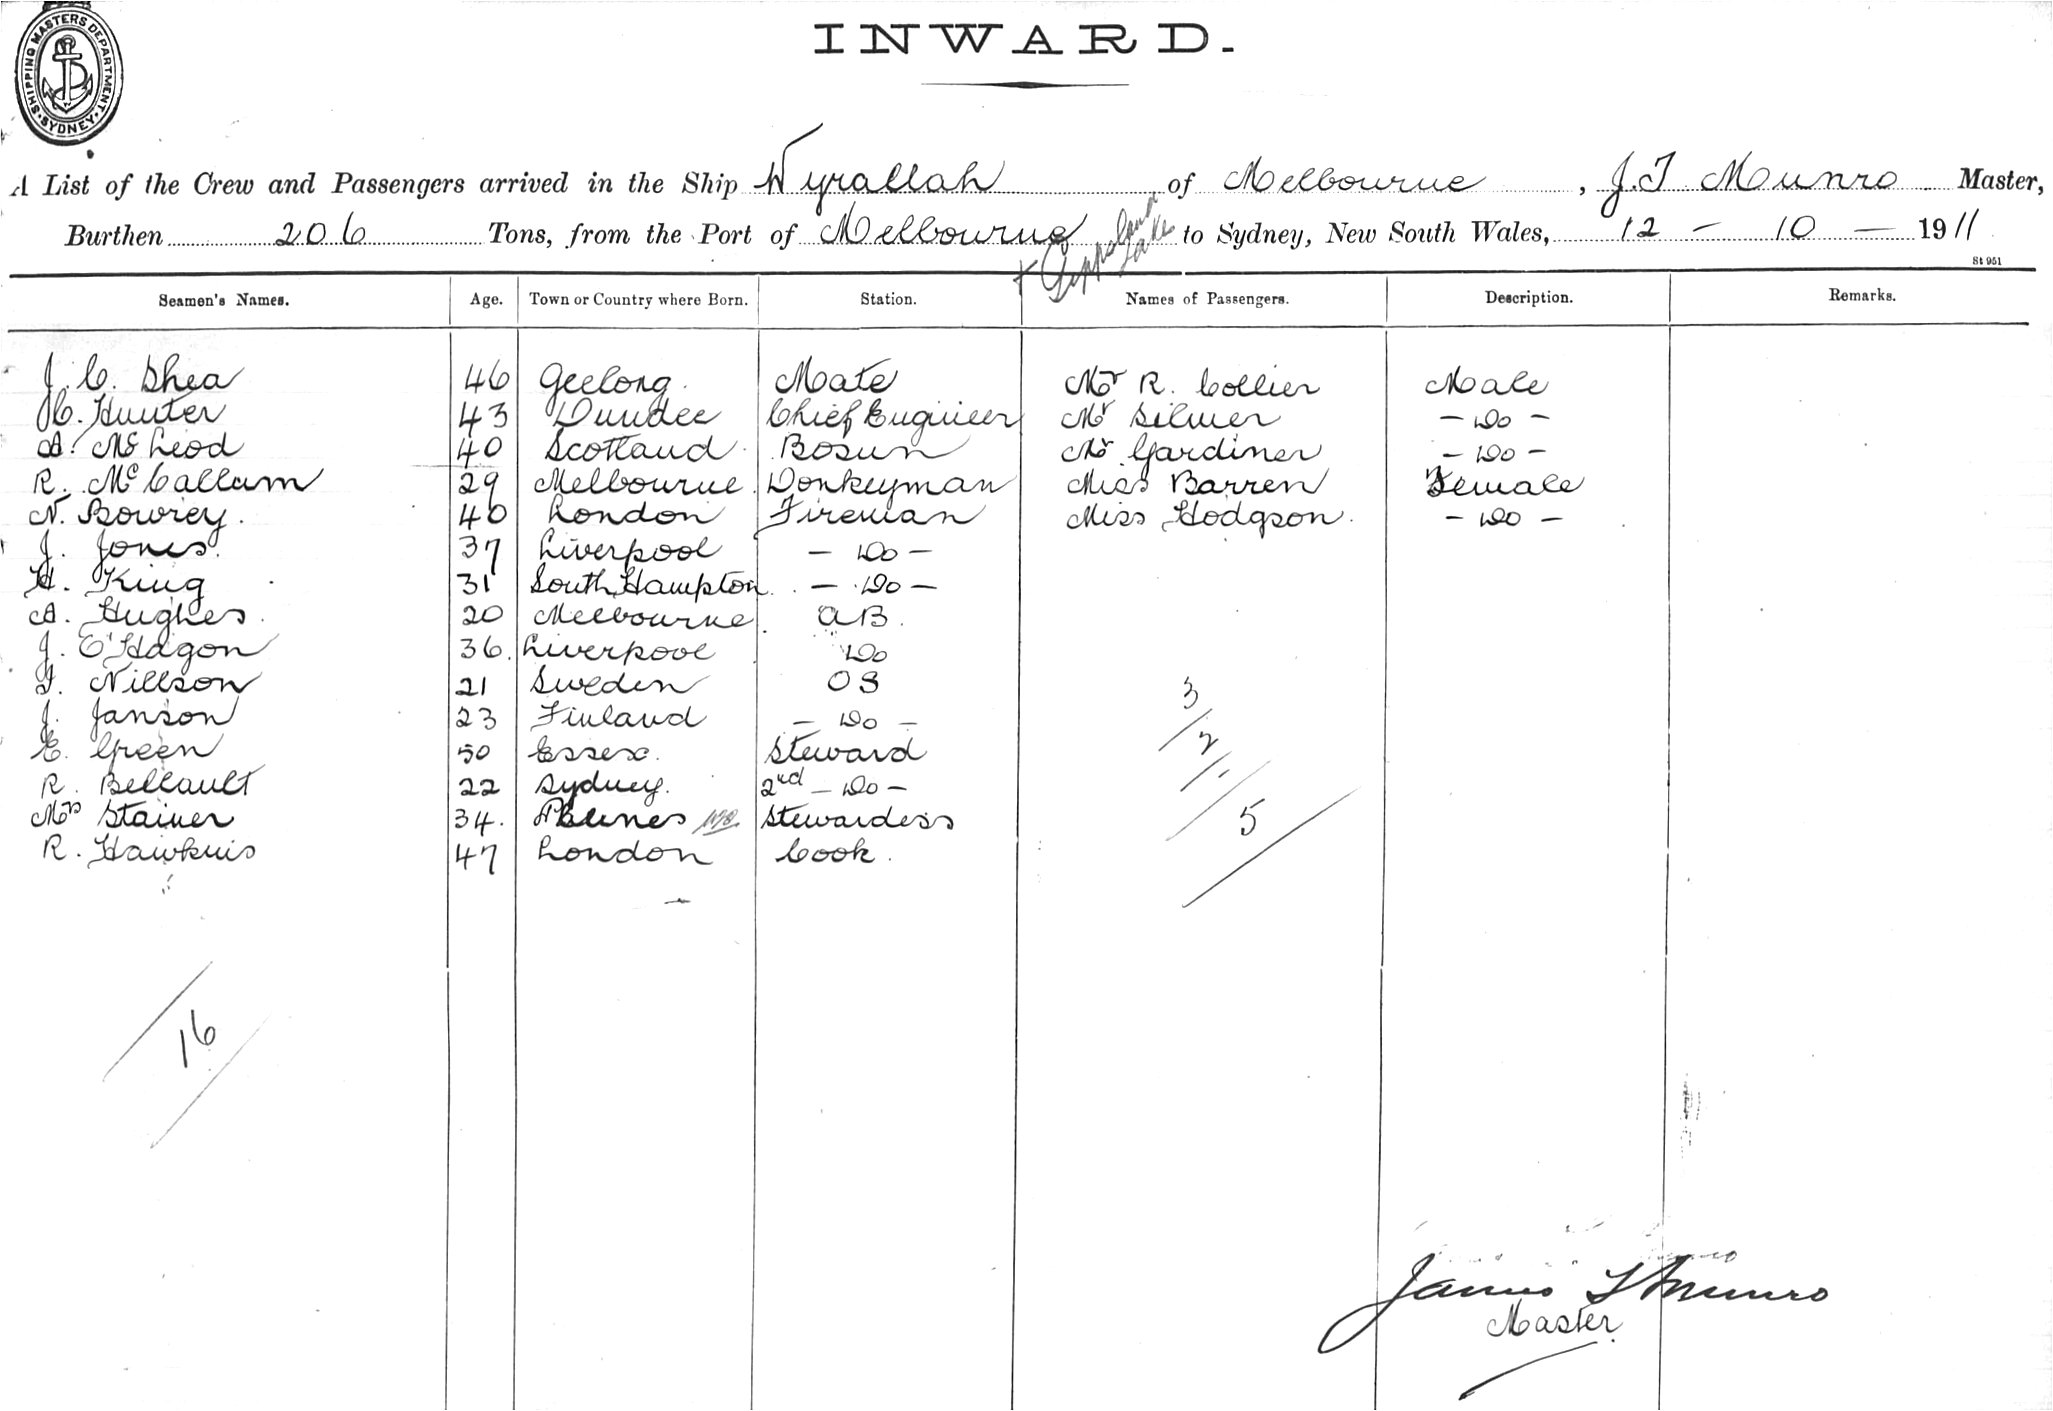 SHIPPING MASTERS DEPARTMENT. SYDNEY
INWARD.
A List of the Crew and Passengers arrived in the Ship Wyrallah of Melbourne, J. T. Munro Master,
Burthen 206 Tons, from the Port of Melbourne + Gippsland Lake to Sydney, New South Wales, 12 - 10 - 1911
St 951
Seamen's Names. Age. Town or Country where Born. Station. Names of Passengers. Description. Remarks.
J. C. Shea 46 Geelong. Mate Mr R. Collier Male
C. Hunter 43 Dundee Chief Engineer Mr Silmer - Do -
A. McLeod 40 Scotland Bosun Mr Gardiner - Do -
R. McCallum 29 Melbourne Donkeyman Miss Barren Female
N. Bowrey. 40 London Fireman Miss Hodgson. - Do -
J. Jones. 37 Liverpool - Do -
H. King 31 South Hampton - Do -
A. Hughes 20 Melbourne AB.
J. O'Hagon 36. Liverpool Do
F. Nillson 21 Sweden OS
J. Janson 23 Finland - Do -
E. Green 50 Essex. Steward
R. Bellault 22 Sydney. 2nd - Do -
Mrs Stainer 34. Stewardess
R. Hawkins 47 London Cook.
3
2
5
16
James T Munro
Master